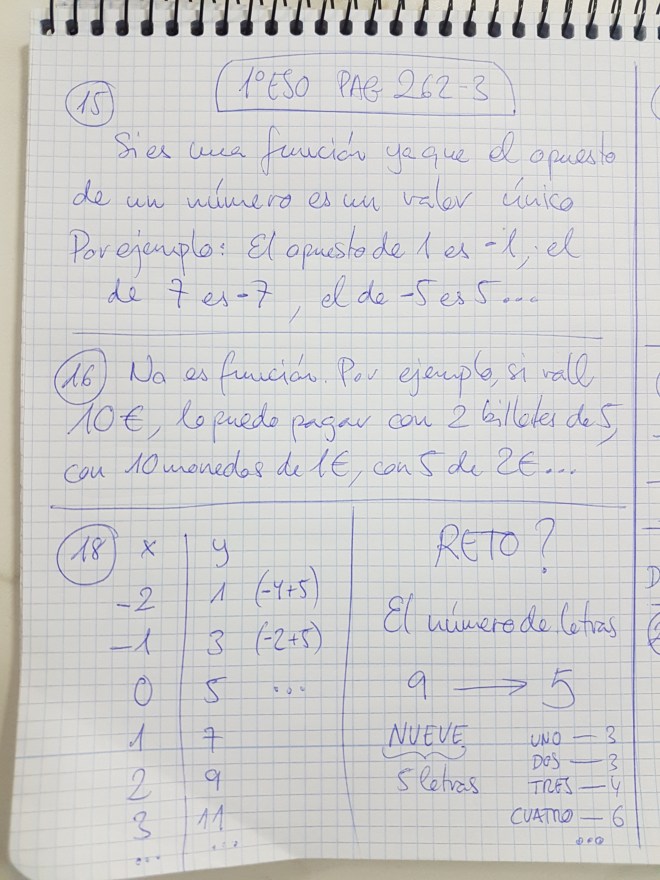 1º ESO PAG 262-3
15
Si es una función ya que el opuesto
de un número es un valor único
Por ejemplo: El opuesto de 1 es -1, el
de 7 es -7, el de -5 es 5...
16 No es función. Por ejemplo, si vall
10€, lo puedo pagar con 2 billetes de 5,
con 10 monedas de 1€, con 5 de 2€...
18 x y
-2 1 (-4+5)
-1 3 (-2+5)
0 5 ...
1 7
2 9
3 11
... ...
RETO?
El número de letras
9 → 5
NUEVE
5 letras
UNO — 3
DOS — 3
TRES — 4
CUATRO — 6
...
D